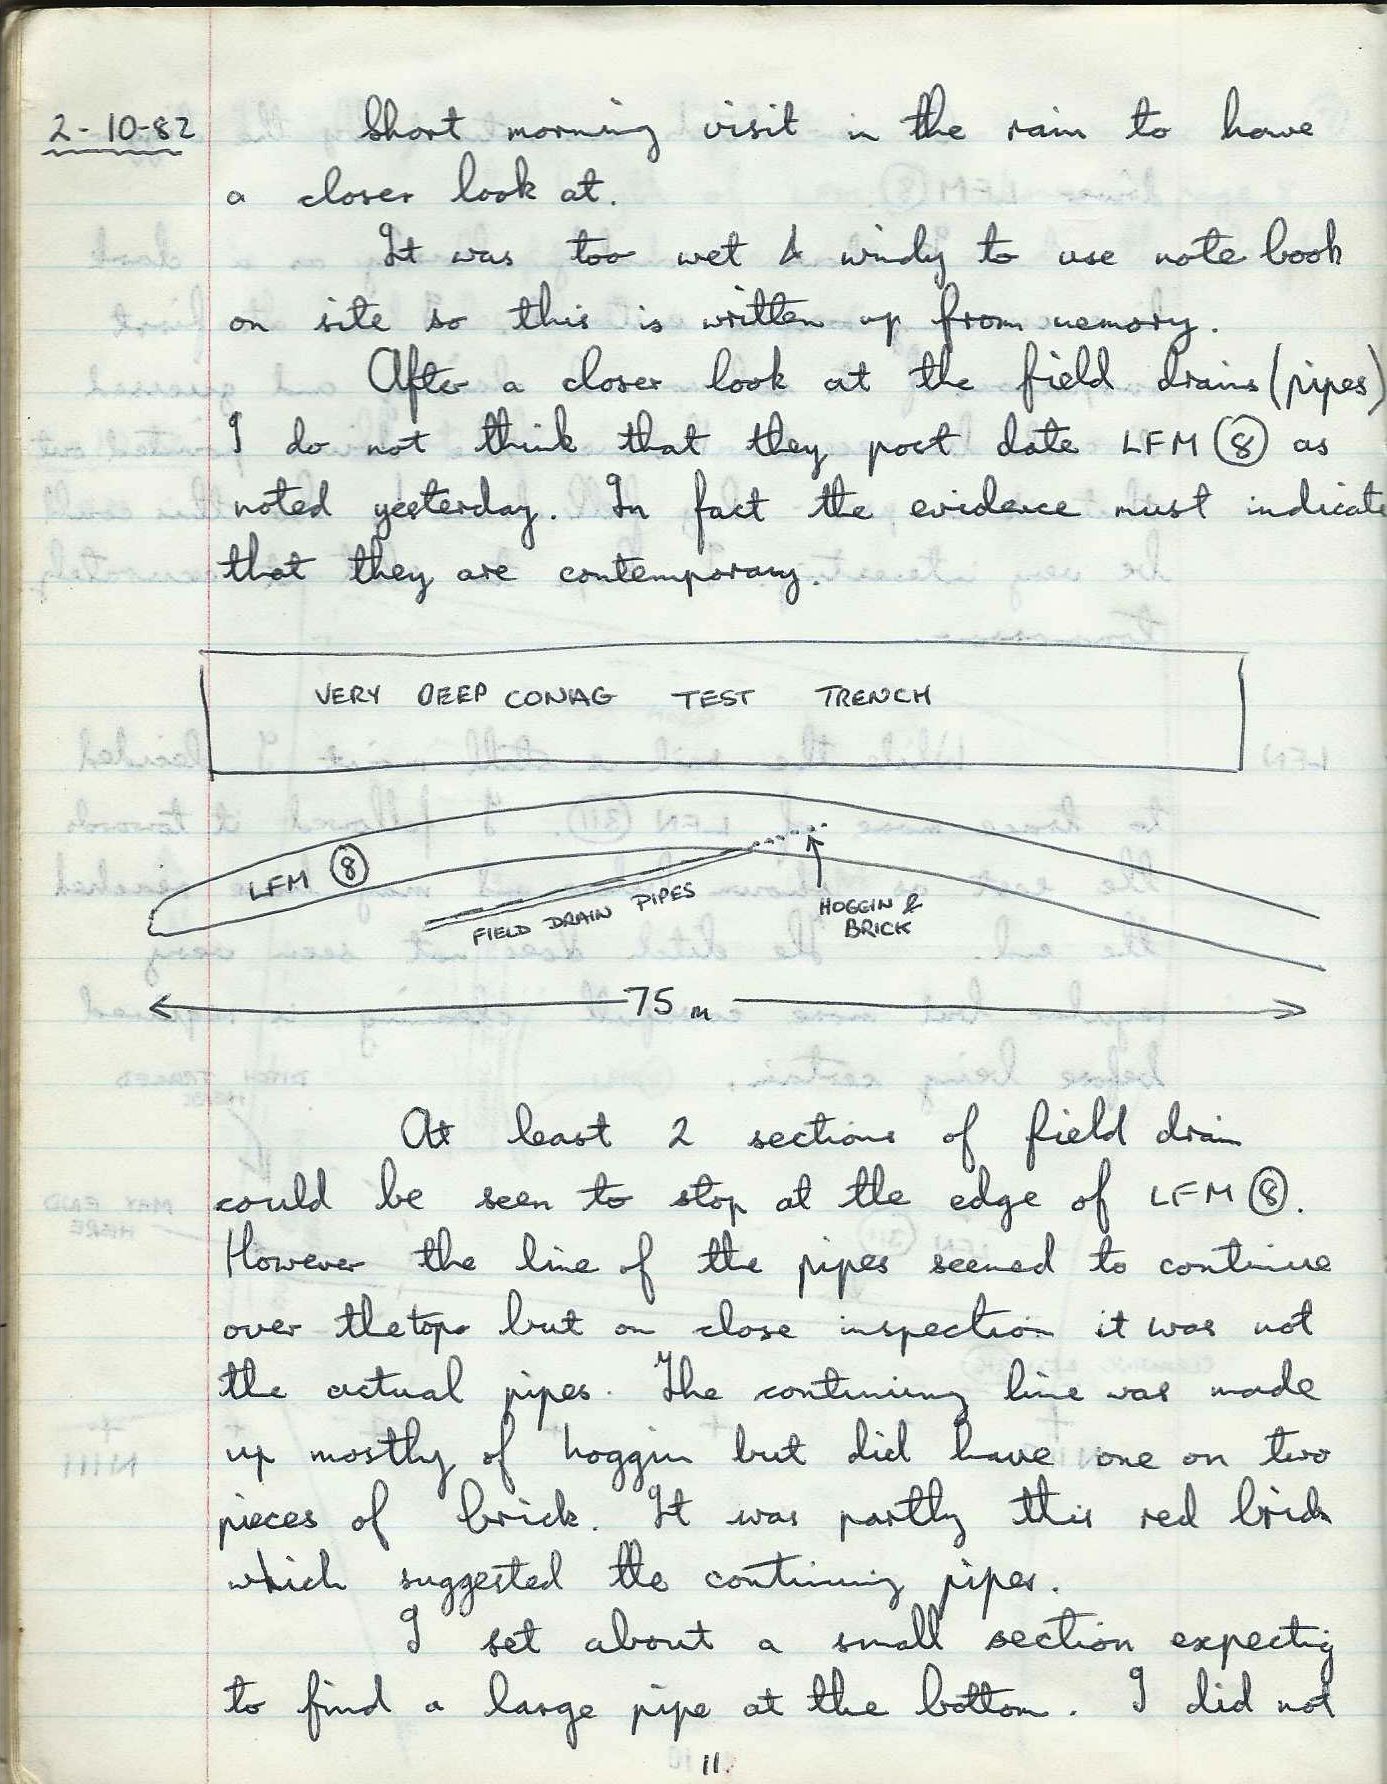 2-10-82
Short morning visit in the rain to have
a closer look at.
It was too wet & windy to use note book
on site so this is written up from memory.
After a closer look at the field drains (pipes)
I do not think that they post date LFM 8 as
noted yesterday. In fact the evidence must indicate
that they are contemporary.
VERY DEEP CONAG TEST TRENCH
LFM 8
FIELD DRAIN PIPES
HOGGIN &
BRICK
75 m
At least 2 sections of field drain
could be seen to stop at the edge of LFM 8.
However the line of the pipes seemed to continue
over the top but on close inspection it was not
the actual pipes. The continuing line was made
up mostly of hoggin but did have one or two
pieces of brick. It was partly this red brick
which suggested the continuing pipes.
I set about a small section expecting
to find a large pipe at the bottom. I did not
11.